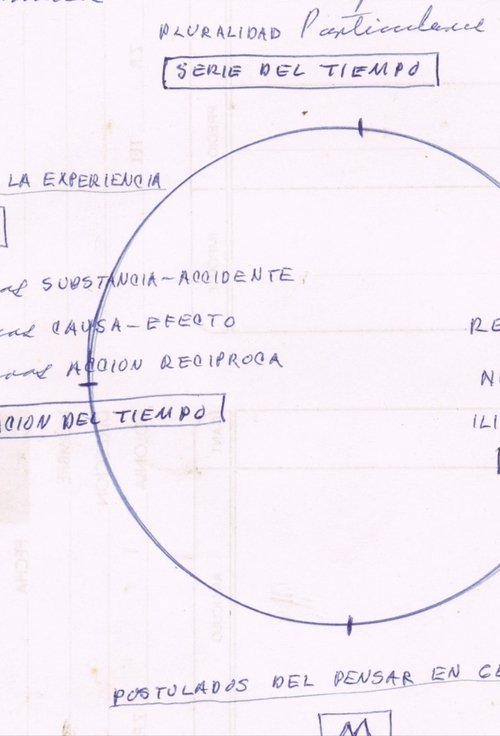 PLURALIDAD Particulares
SERIE DEL TIEMPO
LA EXPERIENCIA
SUBSTANCIA-ACCIDENTE
CAUSA-EFECTO
RE
ACCION RECIPROCA
NE
CION DEL TIEMPO
ILI
POSTULADOS DEL PENSAR EN GE
M